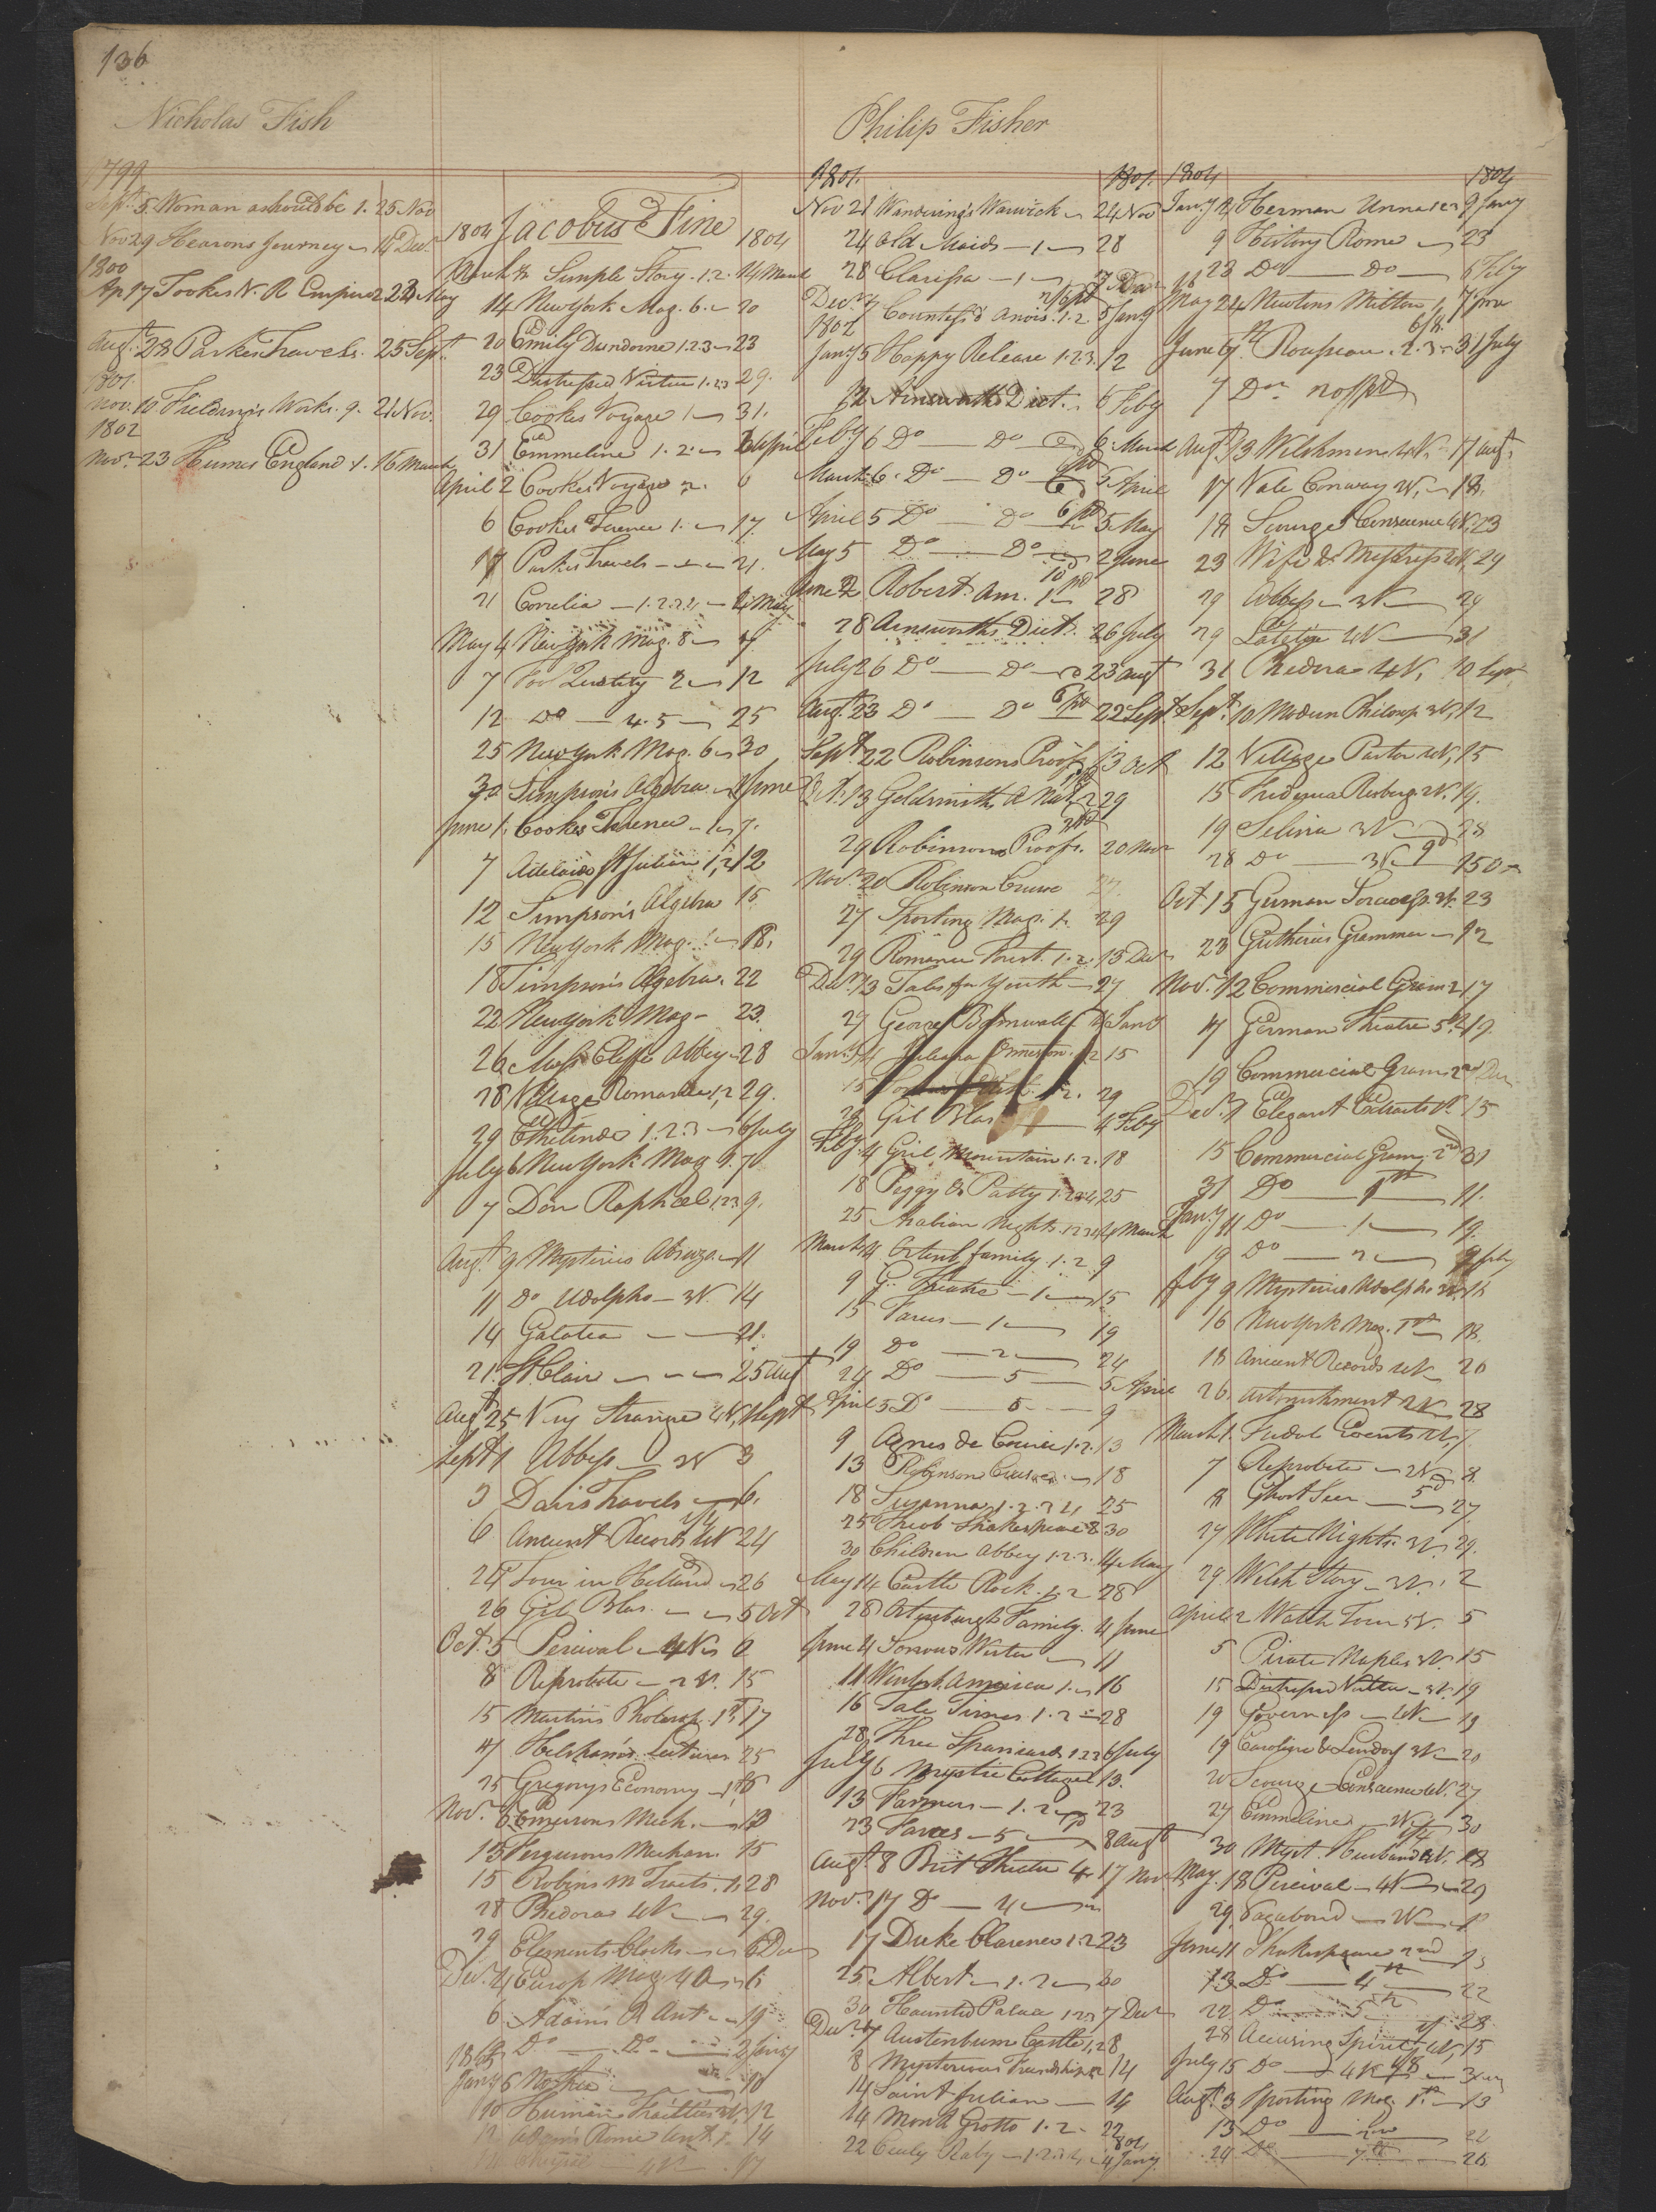 136
Nicholas Fish
1799
Sept. 5 Woman as should be 1. 25 Nov
Nov 29 Hearons Journey 14 Decr
1800
Ap 17 Tookes V. R Empire 2 23 May
Augt 28 Parkes Travels. 25 Sept.
1801.
Nov. 10 Fieldings Works. 9. 21 Nov.
1802
Novr 23 Humes England 1. 16 March
Jacobus Fine
1804 1804
March Simple Story. 1.2. 14 March
14 New York Mag. 6. 20
20 Emily Dundorne 1.2.3 23
23 Distressed Virtue 1.2.3 29.
29 Cookes Voyage 1 31.
31 Emmeline 1.2. 2 April
April 2 Cookes Voyage 2. 6
6 Cookes Terence 1. 17.
17 Parkes Travels 21.
21 Cornelia 1.2.3.4 4 May
May 4 New York Mag. 8 7
7 Fool Quality 2 12
12 Do 4.5 25
25 New York Mag. 6 30
30 Simpsons Algebra 1 June
June 1. Cookes Terence 7.
7 Adelaide St Julian 1,2 12
12 Simpson's Algebra 15
15 New York Mag. 18.
18 Simpson's Algebra. 22
22 New York Mag 23.
26 Miss Cliffe Abbey 28
28 Village Romance 1,2 29.
29 Ethelinde 1.2.3 6 July
July 6 New York Mag 9. 7
7 Don Raphael 1.2.3. 9.
Augt 9 Mysterius Abruzo. 11
11 Do Udolpho 3V. 14
14 Galatea 21.
21. St Clair 25 Augt
Augt 25 Very Strange 4V, 1 Sept
Sept 1 Abbess 3
3 Davis Travels 6.
6 Ancient Records 4V 24
24 Tour in Holland 26
26 Gil Blas. 5 Oct
Oct. 5 Percival 4V 8
8 Reprobate 2V. 15
15 Martins Philosop. 1st, 17
17 Helshams Lectures 25
25 Gregorys Economy 1st 6
Novr 6 Emersons Mech. 13
13 Fergusons Mechan. 15
15 Robins M Tracts. 1, 28
28 Phedora 4V 29.
29 Elements Clocks 6 Dec
Decr 4 Europ Mag 40 6
6 Adams R Ant 19
Do Do 2 Jany
1805
Jany 6 10
10 Human Frailties 12
12 Adams Rome Ant. 14
4V 17
Philip Fisher
1801. 1801.
Nov 21 Wanderings Warwick 24 Nov
24 Old Maids 1 28
28 Clarissa 1 7 Dec
Decr 7 Countess d Anois. 1.2. 5 Jany
1802
Jany 5 Happy Release 1.2.3. 12
12 Ainsworths Dict. 6 Feby
Feby 6 Do Do 6 March
March 6. Do Do 5 April
April 5 Do Do 5 May
May 5 Do Do 2 June
June 2 Roberts Am. 1 28
28 Ainsworths Dict. 26 July
July 26 Do Do 23 Augt
Augt. 23 Do Do 22 Sept
Sept 22 Robinsons Proofs 13 Oct
Oct. 13 Goldsmiths A Nat. 2 29
29 Robinsons Proofs. 20 Novr
Novr 20 Robinson Cruso 27.
27 Sporting Mag. 1. 29
29 Romance Forest. 1.2. 13 Decr
Decr 13 Tales for Youth 27
27 George Barnwall 4 Jany
Jany 4 Juliana Ormeston. 1.2 15
15 1.2. 29
29 Gil Blas 4 Feby
Feby. 4 Gril Mountain 1.2. 18
18 Peggy & Patty 1.2.3.4, 25
25 Arabian Nights. 1.2.3.4, 4 March
March 4 Ortenb family 1.2 9
9 G. Theatre 1 15
15 Farces 1 19
19 Do 2 24
24 Do 5 5 April
April 5 Do 5 9
9 Agnes de Courci 1.2. 13
13 Robinson Crusoe. 18
18 Susanna 1.2.3.4, 25
25 Theob Shakespeare 8 30
30 Children Abbey 1.2.3. 14 May
May 14 Castle Rock. 1.2 28
28 Ortenburgh Family. 4 June
June 4 Sorrows Werter 11
11 Winterb America 1. 16
16 Tale Times 1.2 28
28 Three Spaniards 1.2.3 6 July
July 6 Mystic Cottage 1 13.
13 Farmers 1.2 23
23 Farces 5 8 Augt
Augt 8 Brit Theatre 4 17 Nov
Nov. 17 Do 4
17 Duke Clarence 1.2 23
25 Albert 1.2 30
30 Haunted Palace 1.2.3 7 Decr
Decr 7 Austenburn Castle 1, 2 8
8 Mysterious Friendship 1.2 14
14 Saint Julian 14
14 Monk Grotto 1.2. 22
1804
22 Cicely Raby 1.2.3.4, 4 Jany.
1804 1804
Jany 4 Herman Unna 1.2 9 Jany
9 History Rome 23
23 Do Do 6 Feby
May 24 Newtons Milton 1 7 June
June 7 Rousseau. 2.3 31 July
7 Do
Augt 13 Welshmen 4V. 17 Augt
17 Vale Conway 2V. 18.
18 Scourge Conscience 4V. 23
23 Wife & Mistress 4V. 29
29 Abbess 3V 29
29 4V 31
31 Phedora 4V. 10 Sept
Sept. 10 Modern Philosop 3V. 12
12 Village Pastor 4V. 15
15 Frederica Risberg. 2V. 19.
19 Selina 3V 28
28 Do 3V 15 Oct
Oct 15 German Sorceress. 3V. 23
23 Guthries Grammer 12
Nov. 12 Commercial Gram 2 17
17 German Theatre 5th 19.
19 Commercial Gram 2nd Dec
Decr 7 Elegant Extracts V. 15
15 Commercial Gram. 2nd 31
31 Do 1st 11.
Jany 11 Do 1 19.
19 Do 2 9 Feby
Feby 9 Mysteries Udolpho 3V. 16
16 New York Mag. 1st 18.
18 Ancient Records 4V 26
26. Astonishment 2V 28
March 1. Feudal Events 2V, 7.
7 Reprobate 2V 8.
8 Ghost Seer 27.
27 White Knights. 3V. 29.
29. Welsh Story 3V. 2
April 2 Watch Tower 5V. 5
5 Pirate Naples 3V. 15
15 Distressed Virtue 3V. 19
19 Governess 4V 19
19 Caroline & Lindorf 3V 20
20 Scourge Conscience 4V. 27
27 Emmeline 2V 30
30 Myst. Husband 4V. 18
May. 18 Percival 4V 29
29 Vagabond 2V
June 11 Shakespeare 2nd 13
13 Do 4th 22
22 Do 5th 28
28 Accusing Spirit 4V, 15
July 15 Do 4V
Augt 3 Sporting Mag. 1st 13
13 Do 2nd 22
24 Do 7th 26